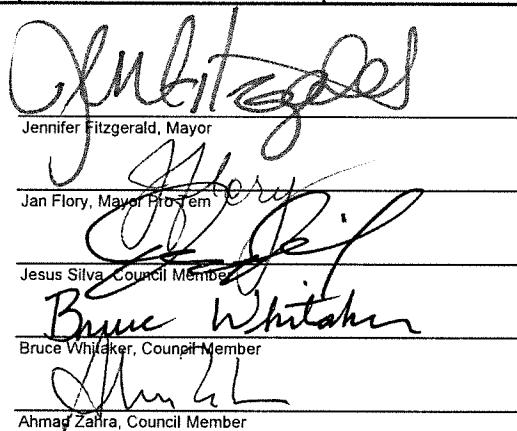 Jen Fitzgerald
Jennifer Fitzgerald, Mayor
J Flory
Jan Flory, Mayor Pro Tem
Jesus Silva, Council Member
Bruce Whitaker
Bruce Whitaker, Council Member
Ahmad Zahra, Council Member